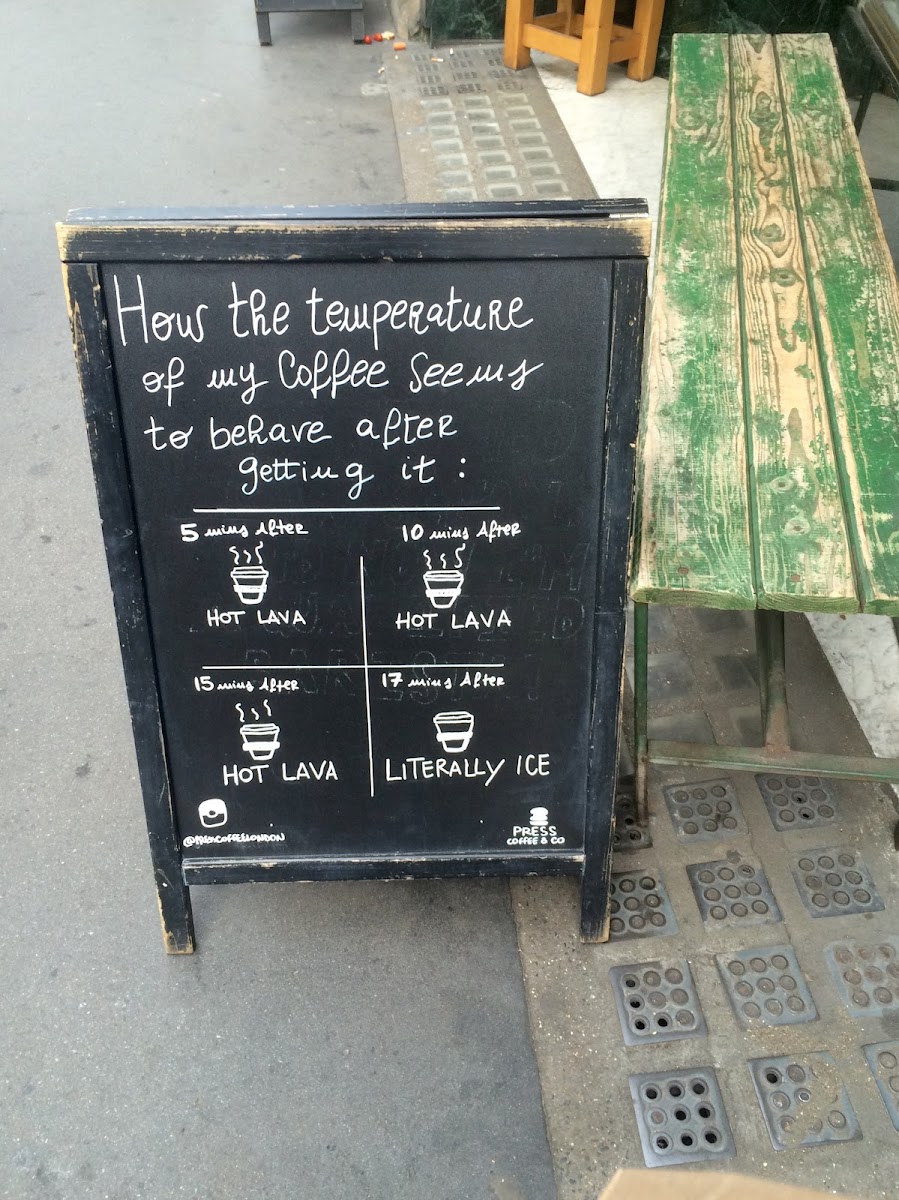 How the temperature
of my Coffee Seems
to behave after
getting it :
5 mins After
10 mins After
HOT LAVA
HOT LAVA
15 mins After
17 mins After
HOT LAVA
LITERALLY ICE
@PRESSCOFFEELONDON
PRESS
COFFEE & CO